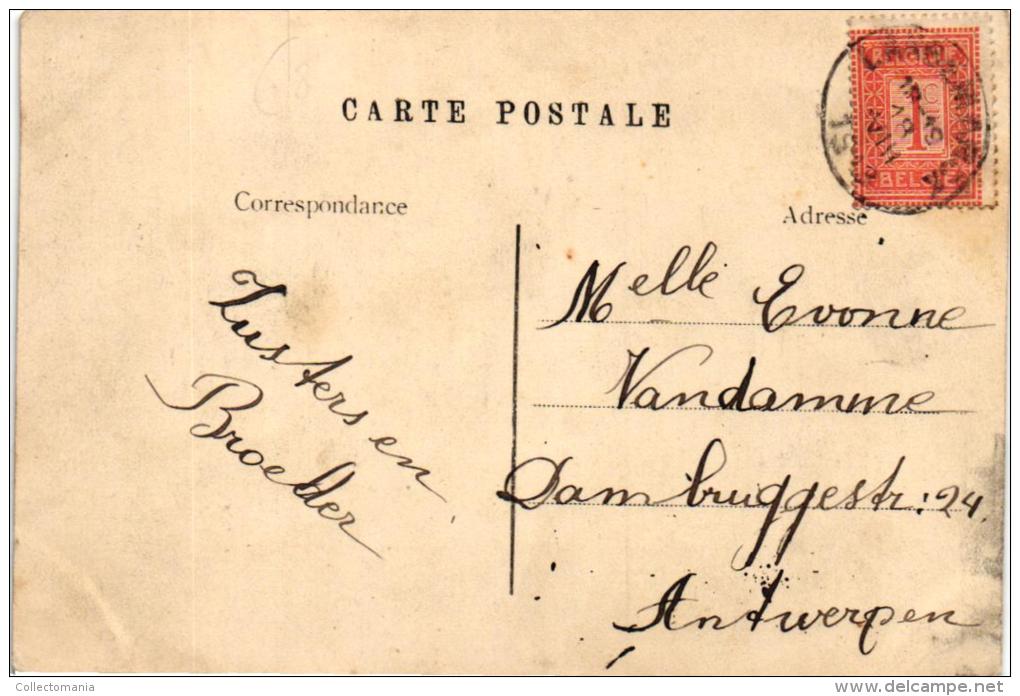 CARTE POSTALE
Correspondance
Adresse
BELGIQUE
1
C
BELG
Zusters en
Broeder
Melle Evonne
Vandamme
Dambruggestr: 24
Antwerpen
Collectomania
www.delcampe.net